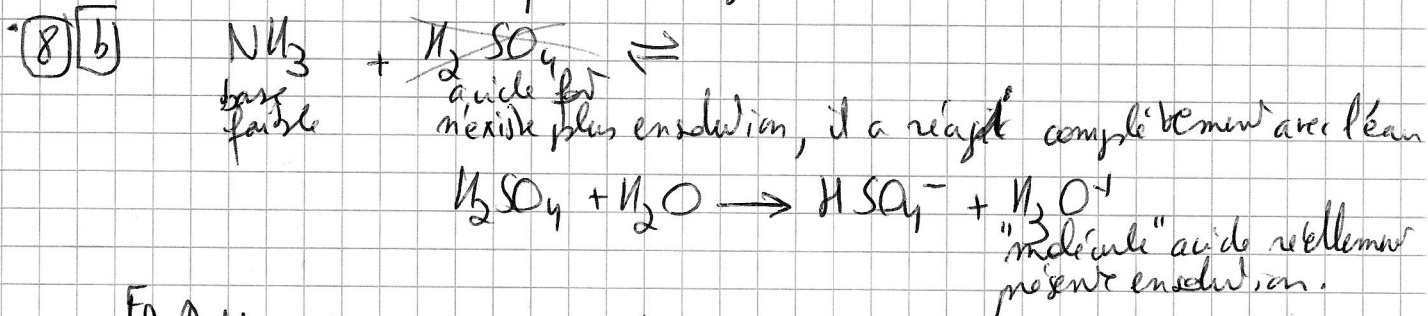 8 b NH3 + H2SO4 ⇌
base acide fort
faible n'existe plus en solution, il a réagit complètement avec l'eau
H2SO4 + H2O → HSO4⁻ + H3O⁺
"molécule" acide réellement
présente en solution.